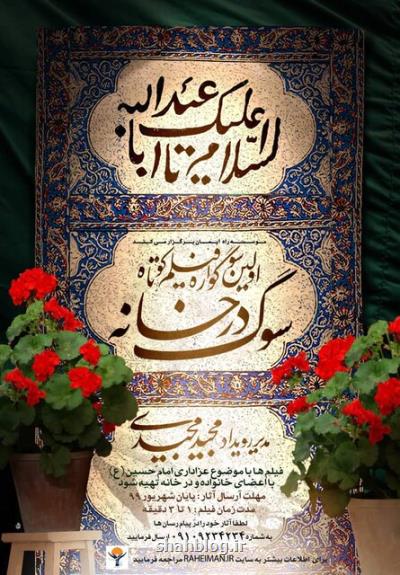 السلام علیک یا اباعبدالله
موسسه راه ایمان برگزار می کند
اولین سوگواره فیلم کوتاه
سوگ در خانه
مدیر رویداد مجید مجیدی
فیلم ها با موضوع عزاداری امام حسین (ع)
با اعضای خانواده و در خانه تهیه شود
مهلت ارسال آثار: پایان شهریور ۹۹
مدت زمان فیلم: ۱ تا ۳ دقیقه
لطفا آثار خود را در پیام رسان ها
به شماره ۰۹۱۰۹۲۳۴۲۳۴ ارسال فرمایید
shahblog.ir
برای اطلاعات بیشتر به سایت RAHEIMAN.IR مراجعه فرمایید